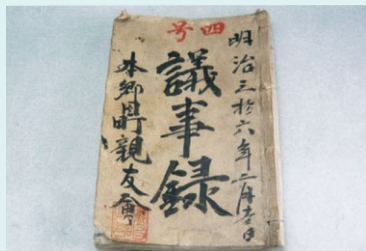 四号
明治三拾六年二月吉日
議事録
本郷町親友会